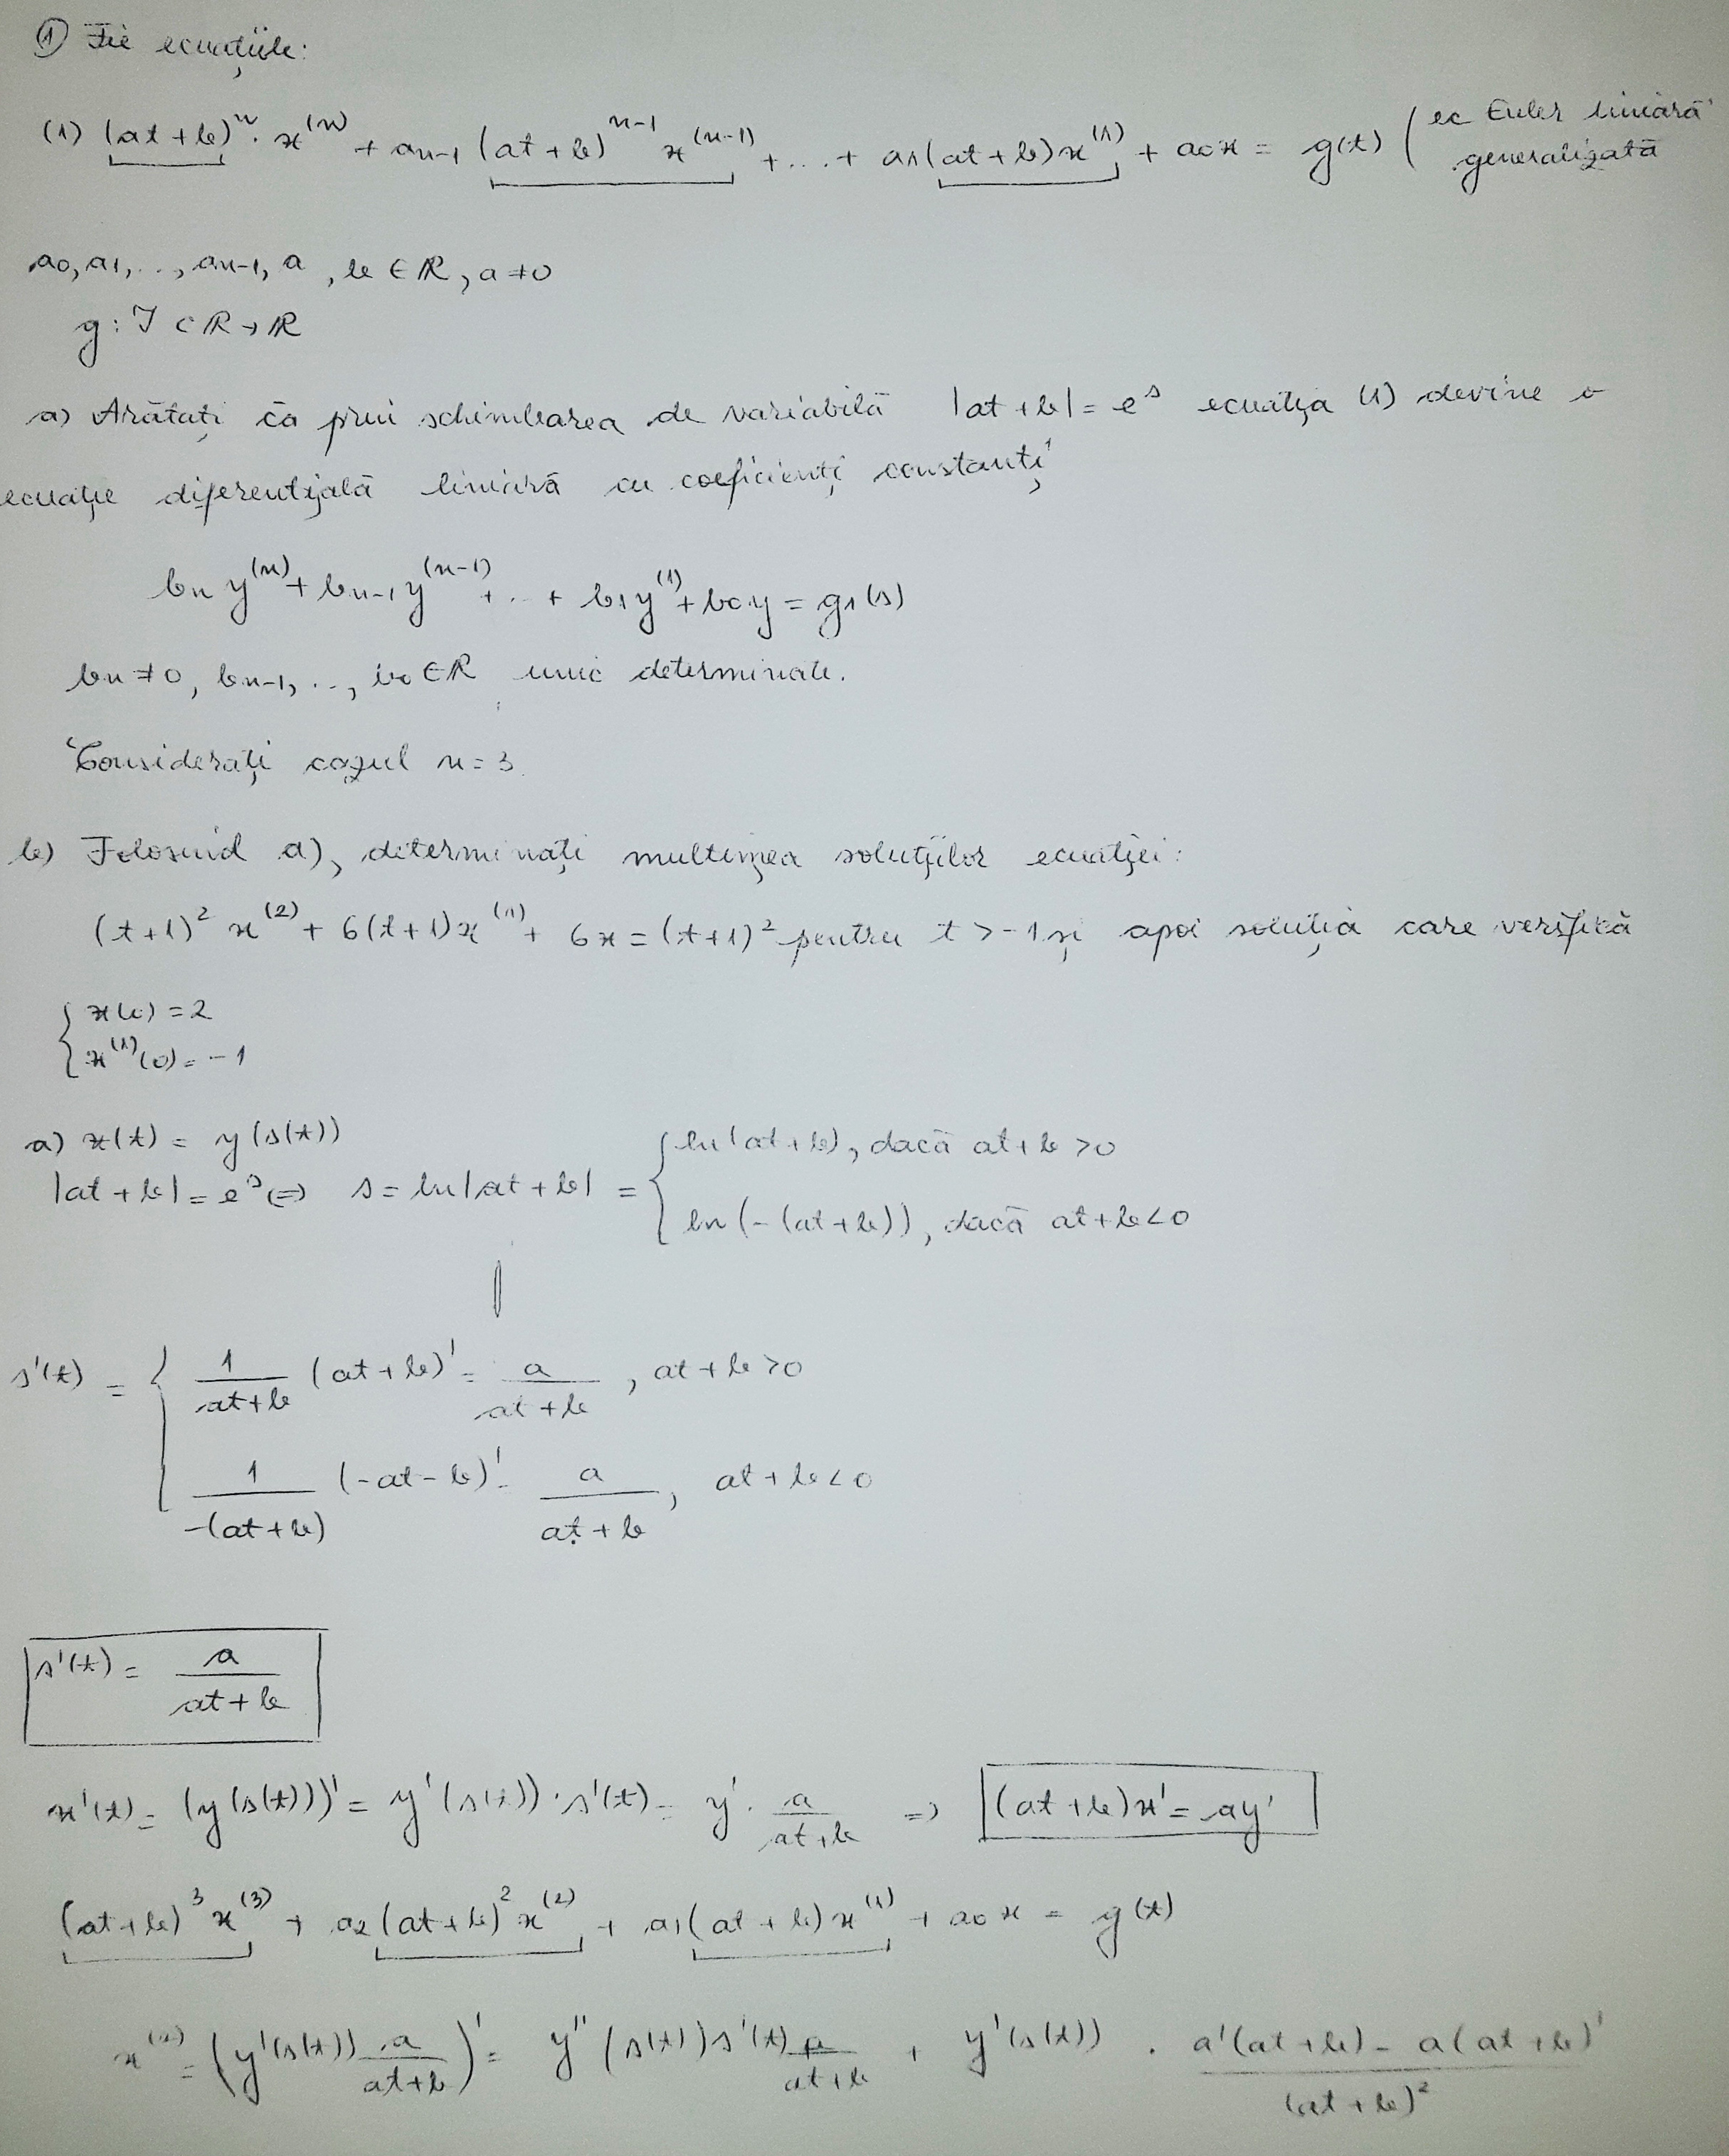 ① Fie ecuațiile:
(1) (at+b)ⁿ · x⁽ⁿ⁾ + aₙ₋₁ (at+b)ⁿ⁻¹ x⁽ⁿ⁻¹⁾ + ... + a₁(at+b)x⁽¹⁾ + a₀x = g(t) ( ec Euler liniară
generalizată
a₀, a₁, ..., aₙ₋₁, a, b ∈ ℝ, a ≠ 0
g: J ⊂ ℝ → ℝ
a) Arătați că prin schimbarea de variabilă |at+b| = eˢ ecuația (1) devine o
ecuație diferențială liniară cu coeficienți constanți
bₙ y⁽ⁿ⁾ + bₙ₋₁ y⁽ⁿ⁻¹⁾ + ... + b₁y⁽¹⁾ + b₀y = g₁(s)
bₙ ≠ 0, bₙ₋₁, ..., b₀ ∈ ℝ unic determinate.
Considerați cazul n = 3.
b) Folosind a), determinați mulțimea soluțiilor ecuației:
(t+1)² x⁽²⁾ + 6(t+1)x⁽¹⁾ + 6x = (t+1)² pentru t > -1 și apoi soluția care verifică
{ x(0) = 2
x⁽¹⁾(0) = -1
a) x(t) = y(s(t))
|at+b| = eˢ ⇔ s = ln|at+b| = { ln(at+b), dacă at+b > 0
ln(-(at+b)), dacă at+b < 0
s'(t) = { 1/(at+b) (at+b)' = a/(at+b), at+b > 0
1/(-(at+b)) (-at-b)' = a/(at+b), at+b < 0
s'(t) = a/(at+b)
x'(t) = (y(s(t)))' = y'(s(t)) · s'(t) = y' · a/(at+b) ⇒ (at+b)x' = ay'
(at+b)³ x⁽³⁾ + a₂(at+b)² x⁽²⁾ + a₁(at+b)x⁽¹⁾ + a₀x = g(t)
x⁽²⁾ = (y'(s(t)) a/(at+b))' = y''(s(t))s'(t) a/(at+b) + y'(s(t)) · (a'(at+b) - a(at+b)')/(at+b)²